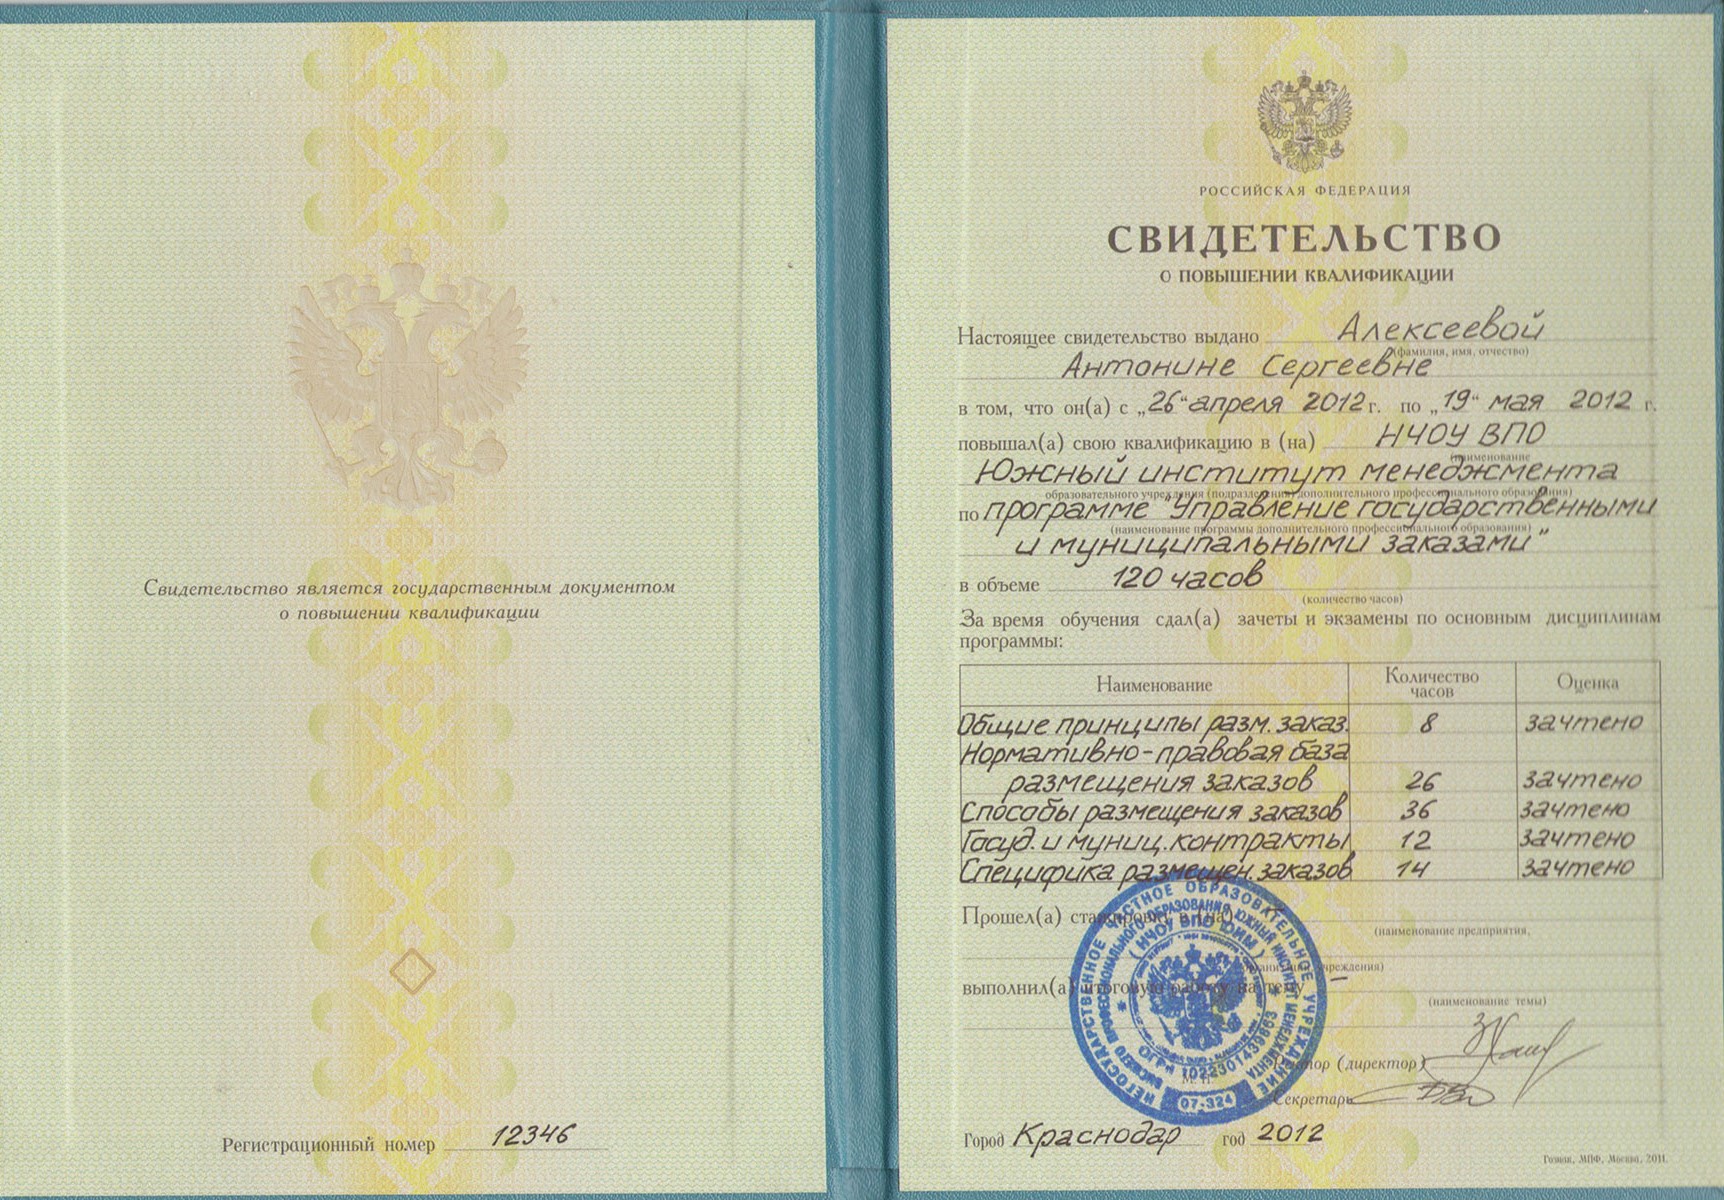 Свидетельство является государственным документом
о повышении квалификации
Регистрационный номер 12346
РОССИЙСКАЯ ФЕДЕРАЦИЯ
СВИДЕТЕЛЬСТВО
О ПОВЫШЕНИИ КВАЛИФИКАЦИИ
Настоящее свидетельство выдано Алексеевой
(фамилия, имя, отчество)
Антонине Сергеевне
в том, что он(а) с „26“ апреля 2012 г. по „19“ мая 2012 г.
повышал(а) свою квалификацию в (на) НЧОУ ВПО
(наименование
Южный институт менеджмента
образовательного учреждения (подразделения) дополнительного профессионального образования)
по программе "Управление государственными
(наименование программы дополнительного профессионального образования)
и муниципальными заказами"
в объеме 120 часов
(количество часов)
За время обучения сдал(а) зачеты и экзамены по основным дисциплинам
программы:
Наименование Количество часов Оценка
Общие принципы разм. заказ. 8 зачтено
Нормативно-правовая база
размещения заказов 26 зачтено
Способы размещения заказов 36 зачтено
Госуд. и муниц. контракты 12 зачтено
Специфика размещен. заказов 14 зачтено
Прошел(а) стажировку в (на)
(наименование предприятия,
организации, учреждения)
выполнил(а) итоговую работу на тему —
(наименование темы)
НЕГОСУДАРСТВЕННОЕ ЧАСТНОЕ ОБРАЗОВАТЕЛЬНОЕ УЧРЕЖДЕНИЕ
ВЫСШЕГО ПРОФЕССИОНАЛЬНОГО ОБРАЗОВАНИЯ ЮЖНЫЙ ИНСТИТУТ МЕНЕДЖМЕНТА
(НЧОУ ВПО ЮИМ)
ОГРН 1022301439863
07-324
М. П.
Ректор (директор)
Секретарь
Город Краснодар год 2012
Гознак, МПФ, Москва, 2011.